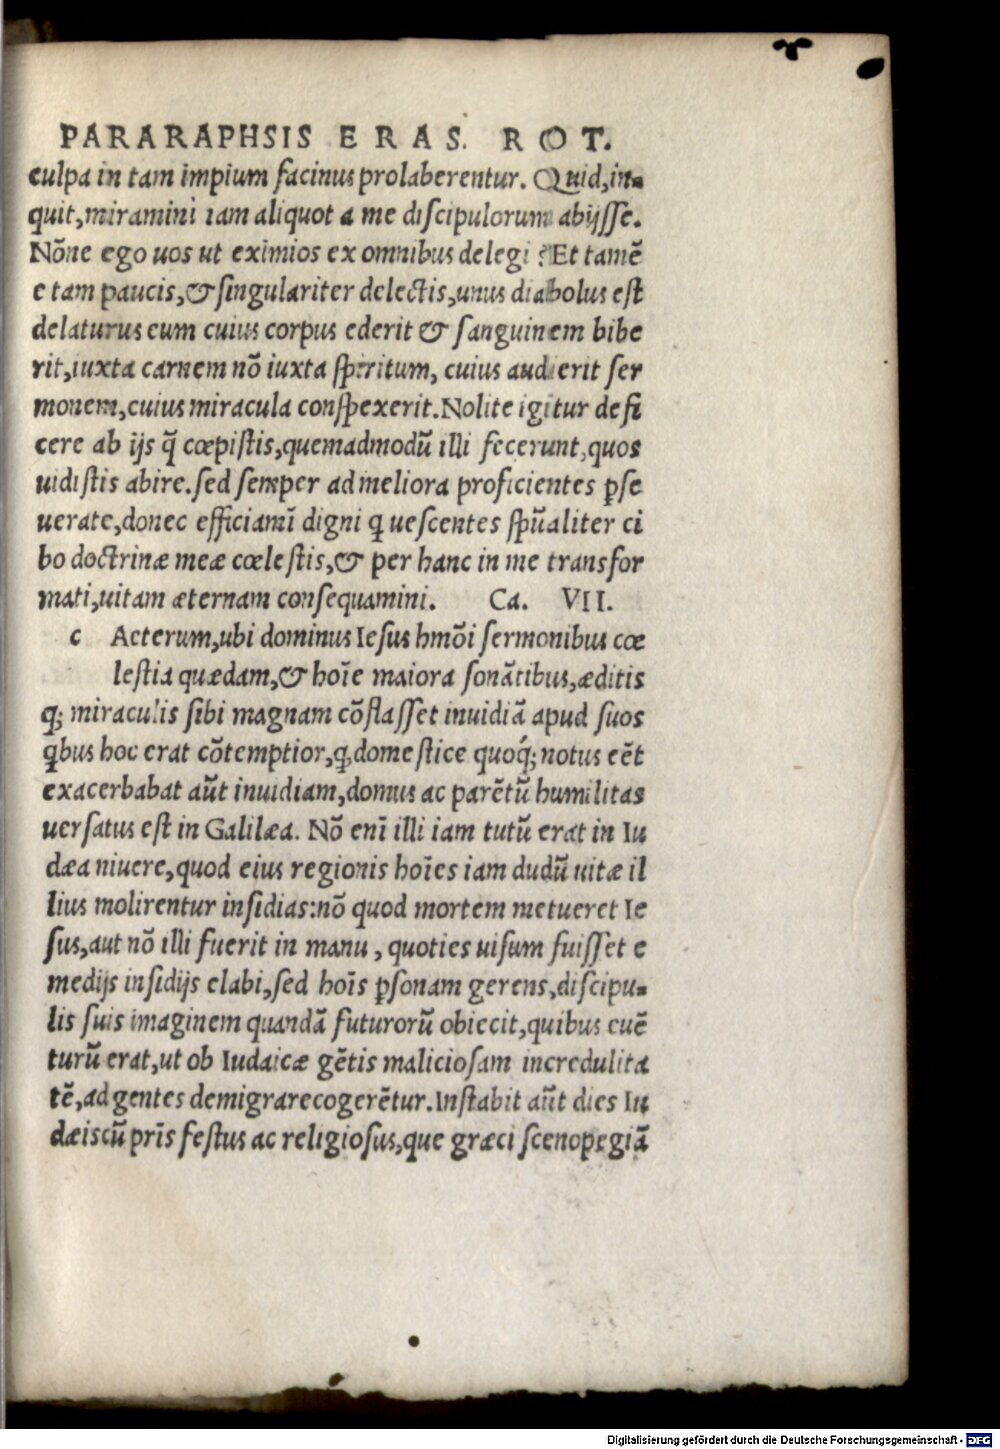 PARARAPHSIS ERAS. ROT.
culpa in tam impium facinus prolaberentur. Quid, in-
quit, miramini iam aliquot a me discipulorum abijsse.
Nõne ego uos ut eximios ex omnibus delegi? Et tamẽ
e tam paucis, & singulariter delectis, unus diabolus est
delaturus eum cuius corpus ederit & sanguinem bibe
rit, iuxta carnem nõ iuxta spiritum, cuius audierit ser
monem, cuius miracula conspexerit. Nolite igitur defi
cere ab ijs q̃ cœpistis, quemadmodũ illi fecerunt, quos
uidistis abire. sed semper ad meliora proficientes ꝑse
uerate, donec efficiamĩ digni q uescentes spũaliter ci
bo doctrinæ meæ cœlestis, & per hanc in me transfor
mati, uitam æternam consequamini. Ca. VII.
c Aeterum, ubi dominus Iesus hmõi sermonibus cœ
lestia quædam, & hoĩe maiora sonãtibus, æditis
q; miraculis sibi magnam cõflasset inuidiã apud suos
qbus hoc erat cõtemptior, q, domestice quoq́; notus eẽt
exacerbabat aũt inuidiam, domus ac parẽtũ humilitas
uersatus est in Galilæa. Nõ enĩ illi iam tutũ erat in Iu
dæa niuere, quod eius regionis hoĩes iam dudũ uitæ il
lius molirentur insidias: nõ quod mortem metueret Ie
sus, aut nõ illi fuerit in manu, quoties uisum fuisset e
medijs insidijs elabi, sed hoĩs ꝑsonam gerens, discipu-
lis suis imaginem quandã futurorũ obiecit, quibus euẽ
turũ erat, ut ob Iudaicæ gẽtis maliciosam incredulita
tẽ, ad gentes demigrare cogerẽtur. Instabit aũt dies Iu
dæis cũ prĩs festus ac religiosus, que græci scenopegiã
Digitalisierung gefördert durch die Deutsche Forschungsgemeinschaft - DFG